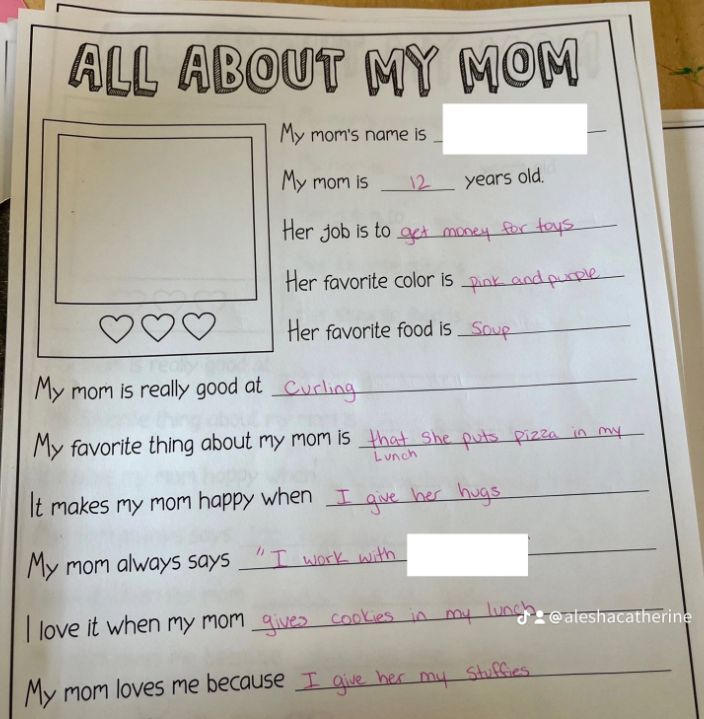 ALL ABOUT MY MOM
My mom's name is
My mom is 12 years old.
Her job is to get money for toys
Her favorite color is pink and purple
Her favorite food is Soup
My mom is really good at Curling
My favorite thing about my mom is that she puts pizza in my
Lunch
It makes my mom happy when I give her hugs
My mom always says "I work with
I love it when my mom gives cookies in my lunch
@aleshacatherine
My mom loves me because I give her my stuffies